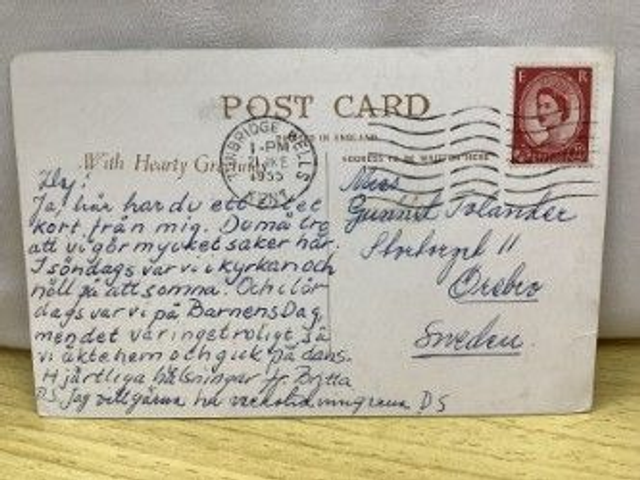 POST CARD
PRINTED IN ENGLAND
E R
TUNBRIDGE WELLS
1-PM
1955
KENT
With Hearty
ADDRESS TO BE WRITTEN HERE
Hej!
Ja, här har du ett litet
kort från mig. Du må tro
att vi gör mycket saker här.
I söndags var vi i kyrkan och
höll på att somna. Och i lör
dags var vi på BarnensDag,
men det var inget roligt, så
vi åkte hem och gick på dans.
Hjärtliga hälsningar fr. Britta
P.S. Jag vill gärna ha D S
Miss
Gunnel Tolander
Stortorget 11
Örebro
Sweden.